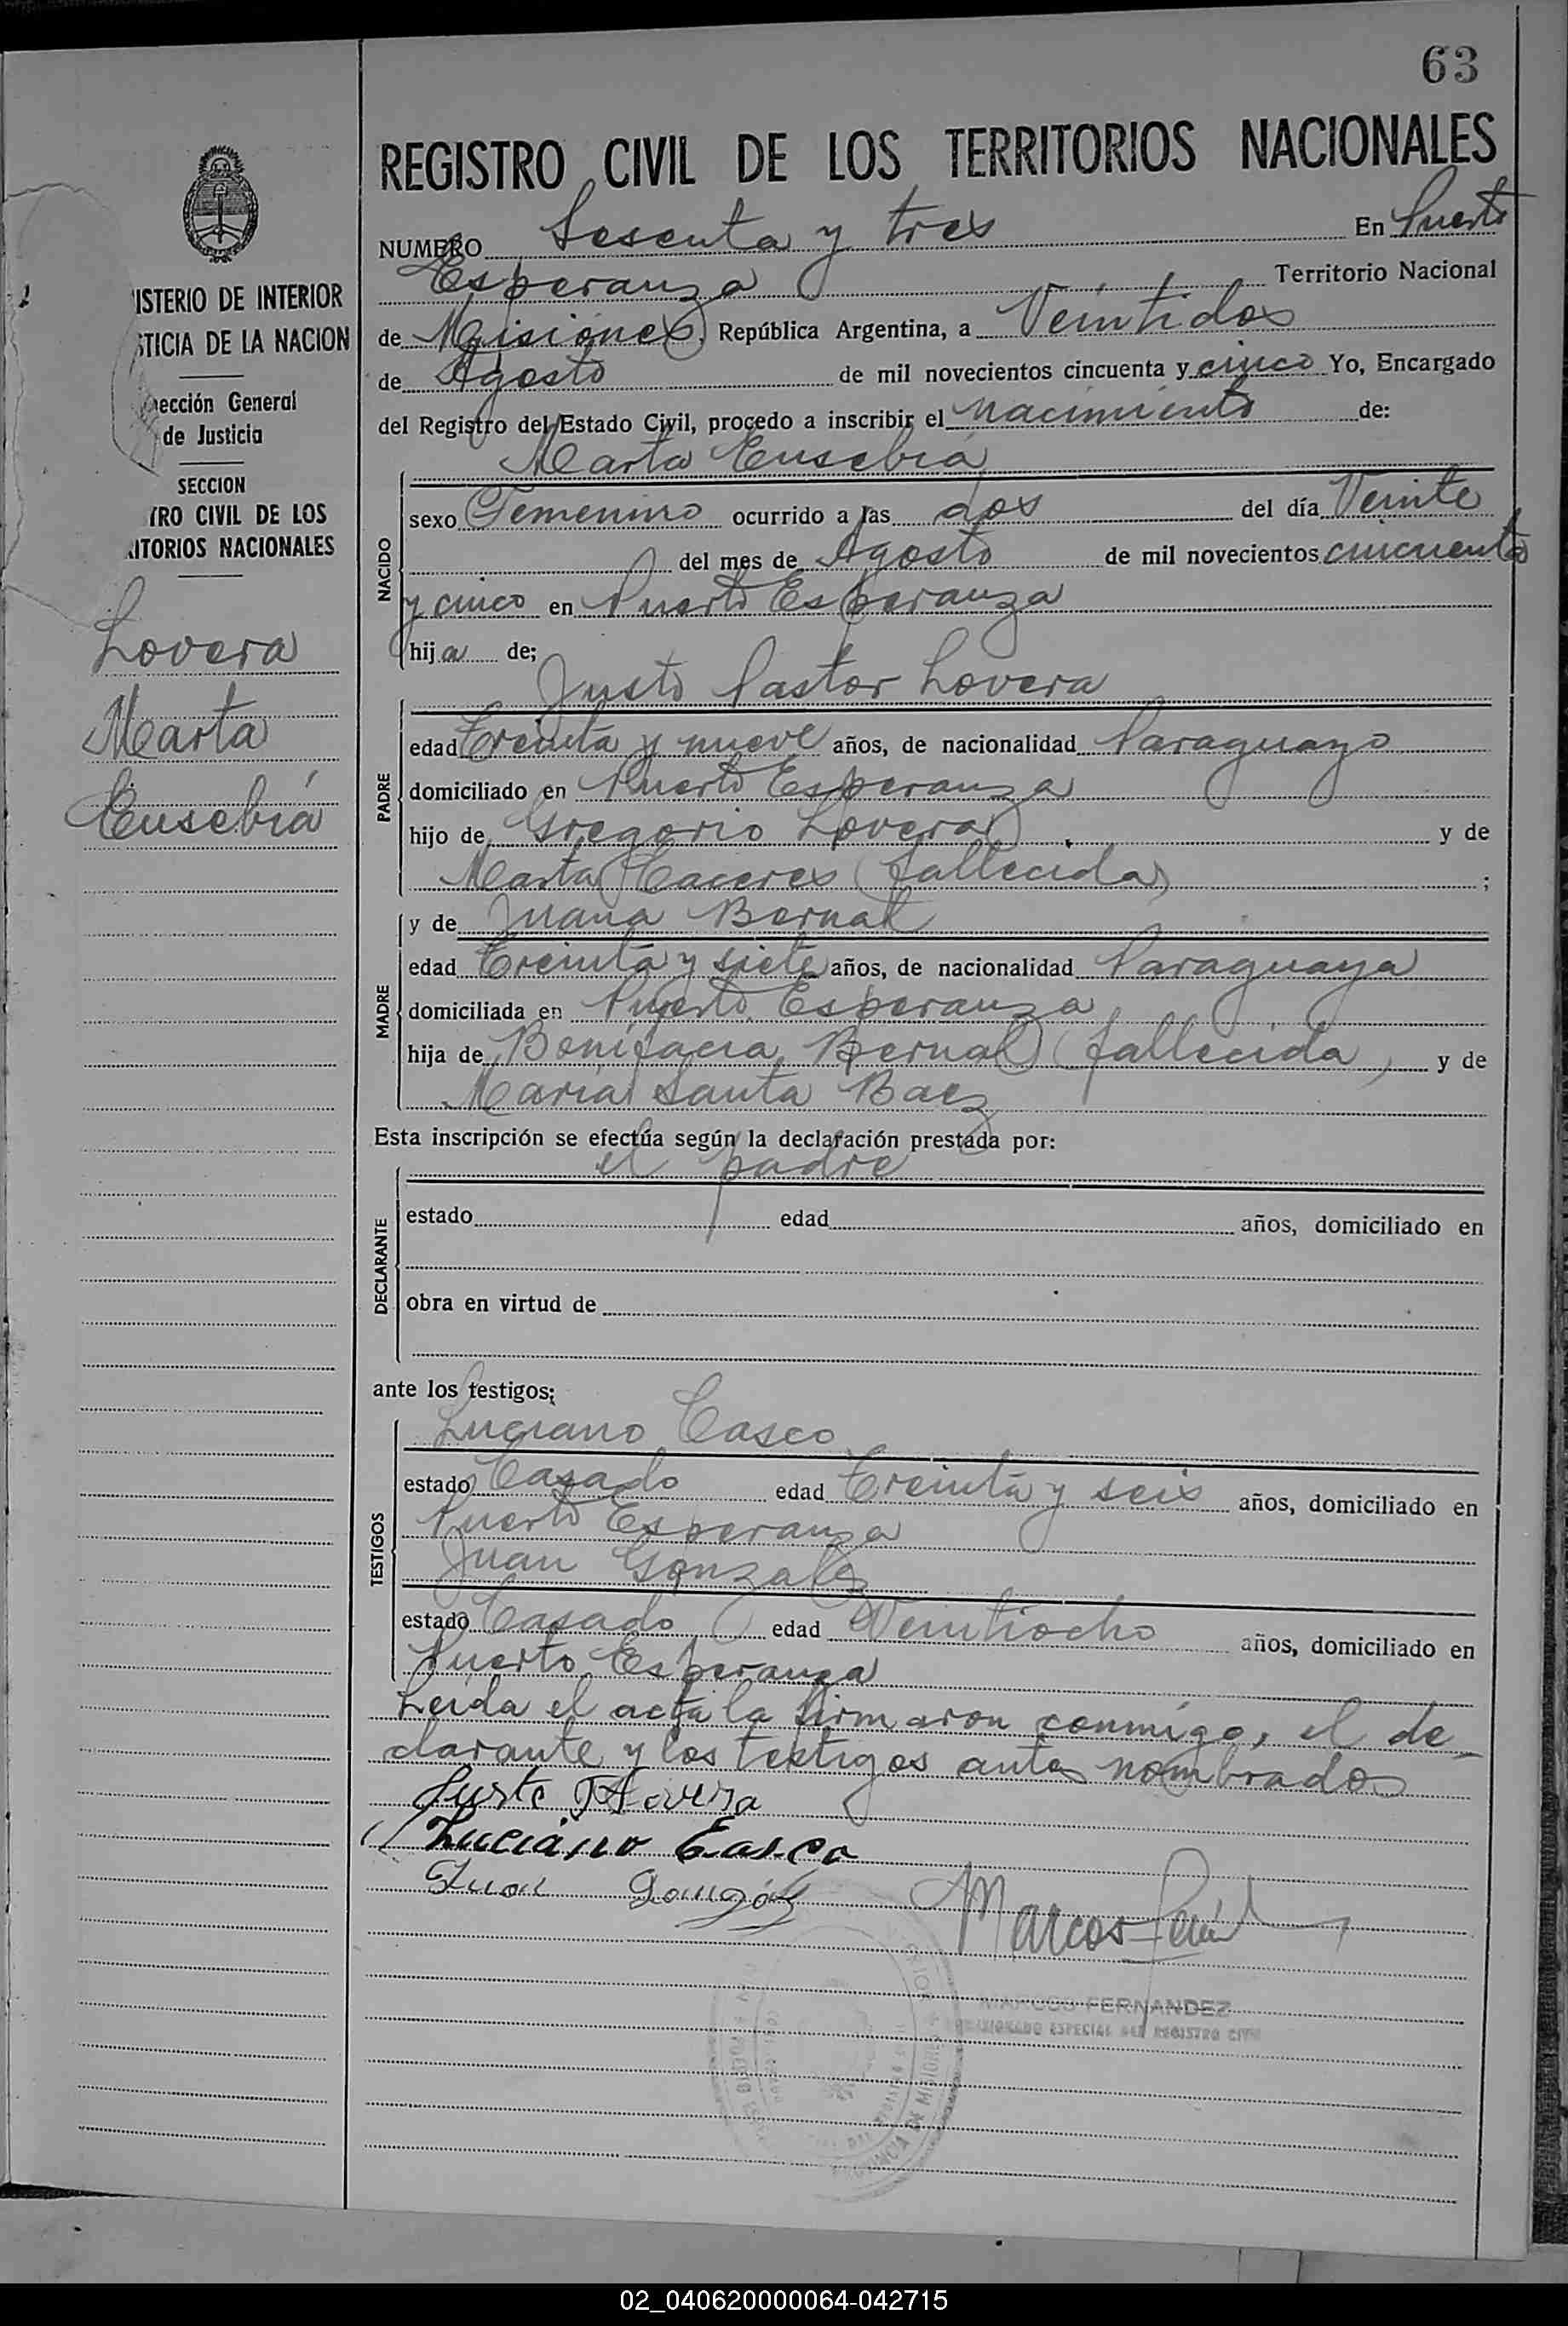 63
REGISTRO CIVIL DE LOS TERRITORIOS NACIONALES
NUMERO Sesenta y tres En Puerto
Esperanza Territorio Nacional
de Misiones, República Argentina, a Veintidos
de Agosto de mil novecientos cincuenta y cinco Yo, Encargado
del Registro del Estado Civil, procedo a inscribir el nacimiento de:
Marta Eusebia
NACIDO
sexo Femenino ocurrido a las dos del día Veinte
del mes de Agosto de mil novecientos cincuenta
y cinco en Puerto Esperanza
hija de;
Justo Pastor Lovera
PADRE
edad Treinta y nueve años, de nacionalidad Paraguayo
domiciliado en Puerto Esperanza
hijo de Gregorio Lovera y de
Marta Caceres (fallecida) ;
y de Juana Bernal
MADRE
edad Treinta y siete años, de nacionalidad Paraguaya
domiciliada en Puerto Esperanza
hija de Bonifacia Bernal (fallecida) y de
Maria Santa Baez
Esta inscripción se efectúa según la declaración prestada por:
el padre
DECLARANTE
estado edad años, domiciliado en
obra en virtud de
ante los testigos;
Luciano Casco
TESTIGOS
estado Casado edad Treinta y seis años, domiciliado en
Puerto Esperanza
Juan Gonzalez
estado Casado edad Veintiocho años, domiciliado en
Puerto Esperanza
Leida el acta la firmaron conmigo, el de-
clarante y los testigos antes nombrados
Justo P Lovera
Luciano Casco
Juan Gonzáz
Marcos
MARCOS FERNANDEZ
ESPECIAL DEL REGISTRO CIVIL
PROVINCIA DE MISIONES
ISTERIO DE INTERIOR
STICIA DE LA NACION
ección General
de Justicia
SECCION
TRO CIVIL DE LOS
ITORIOS NACIONALES
Lovera
Marta
Eusebia
02_040620000064-042715